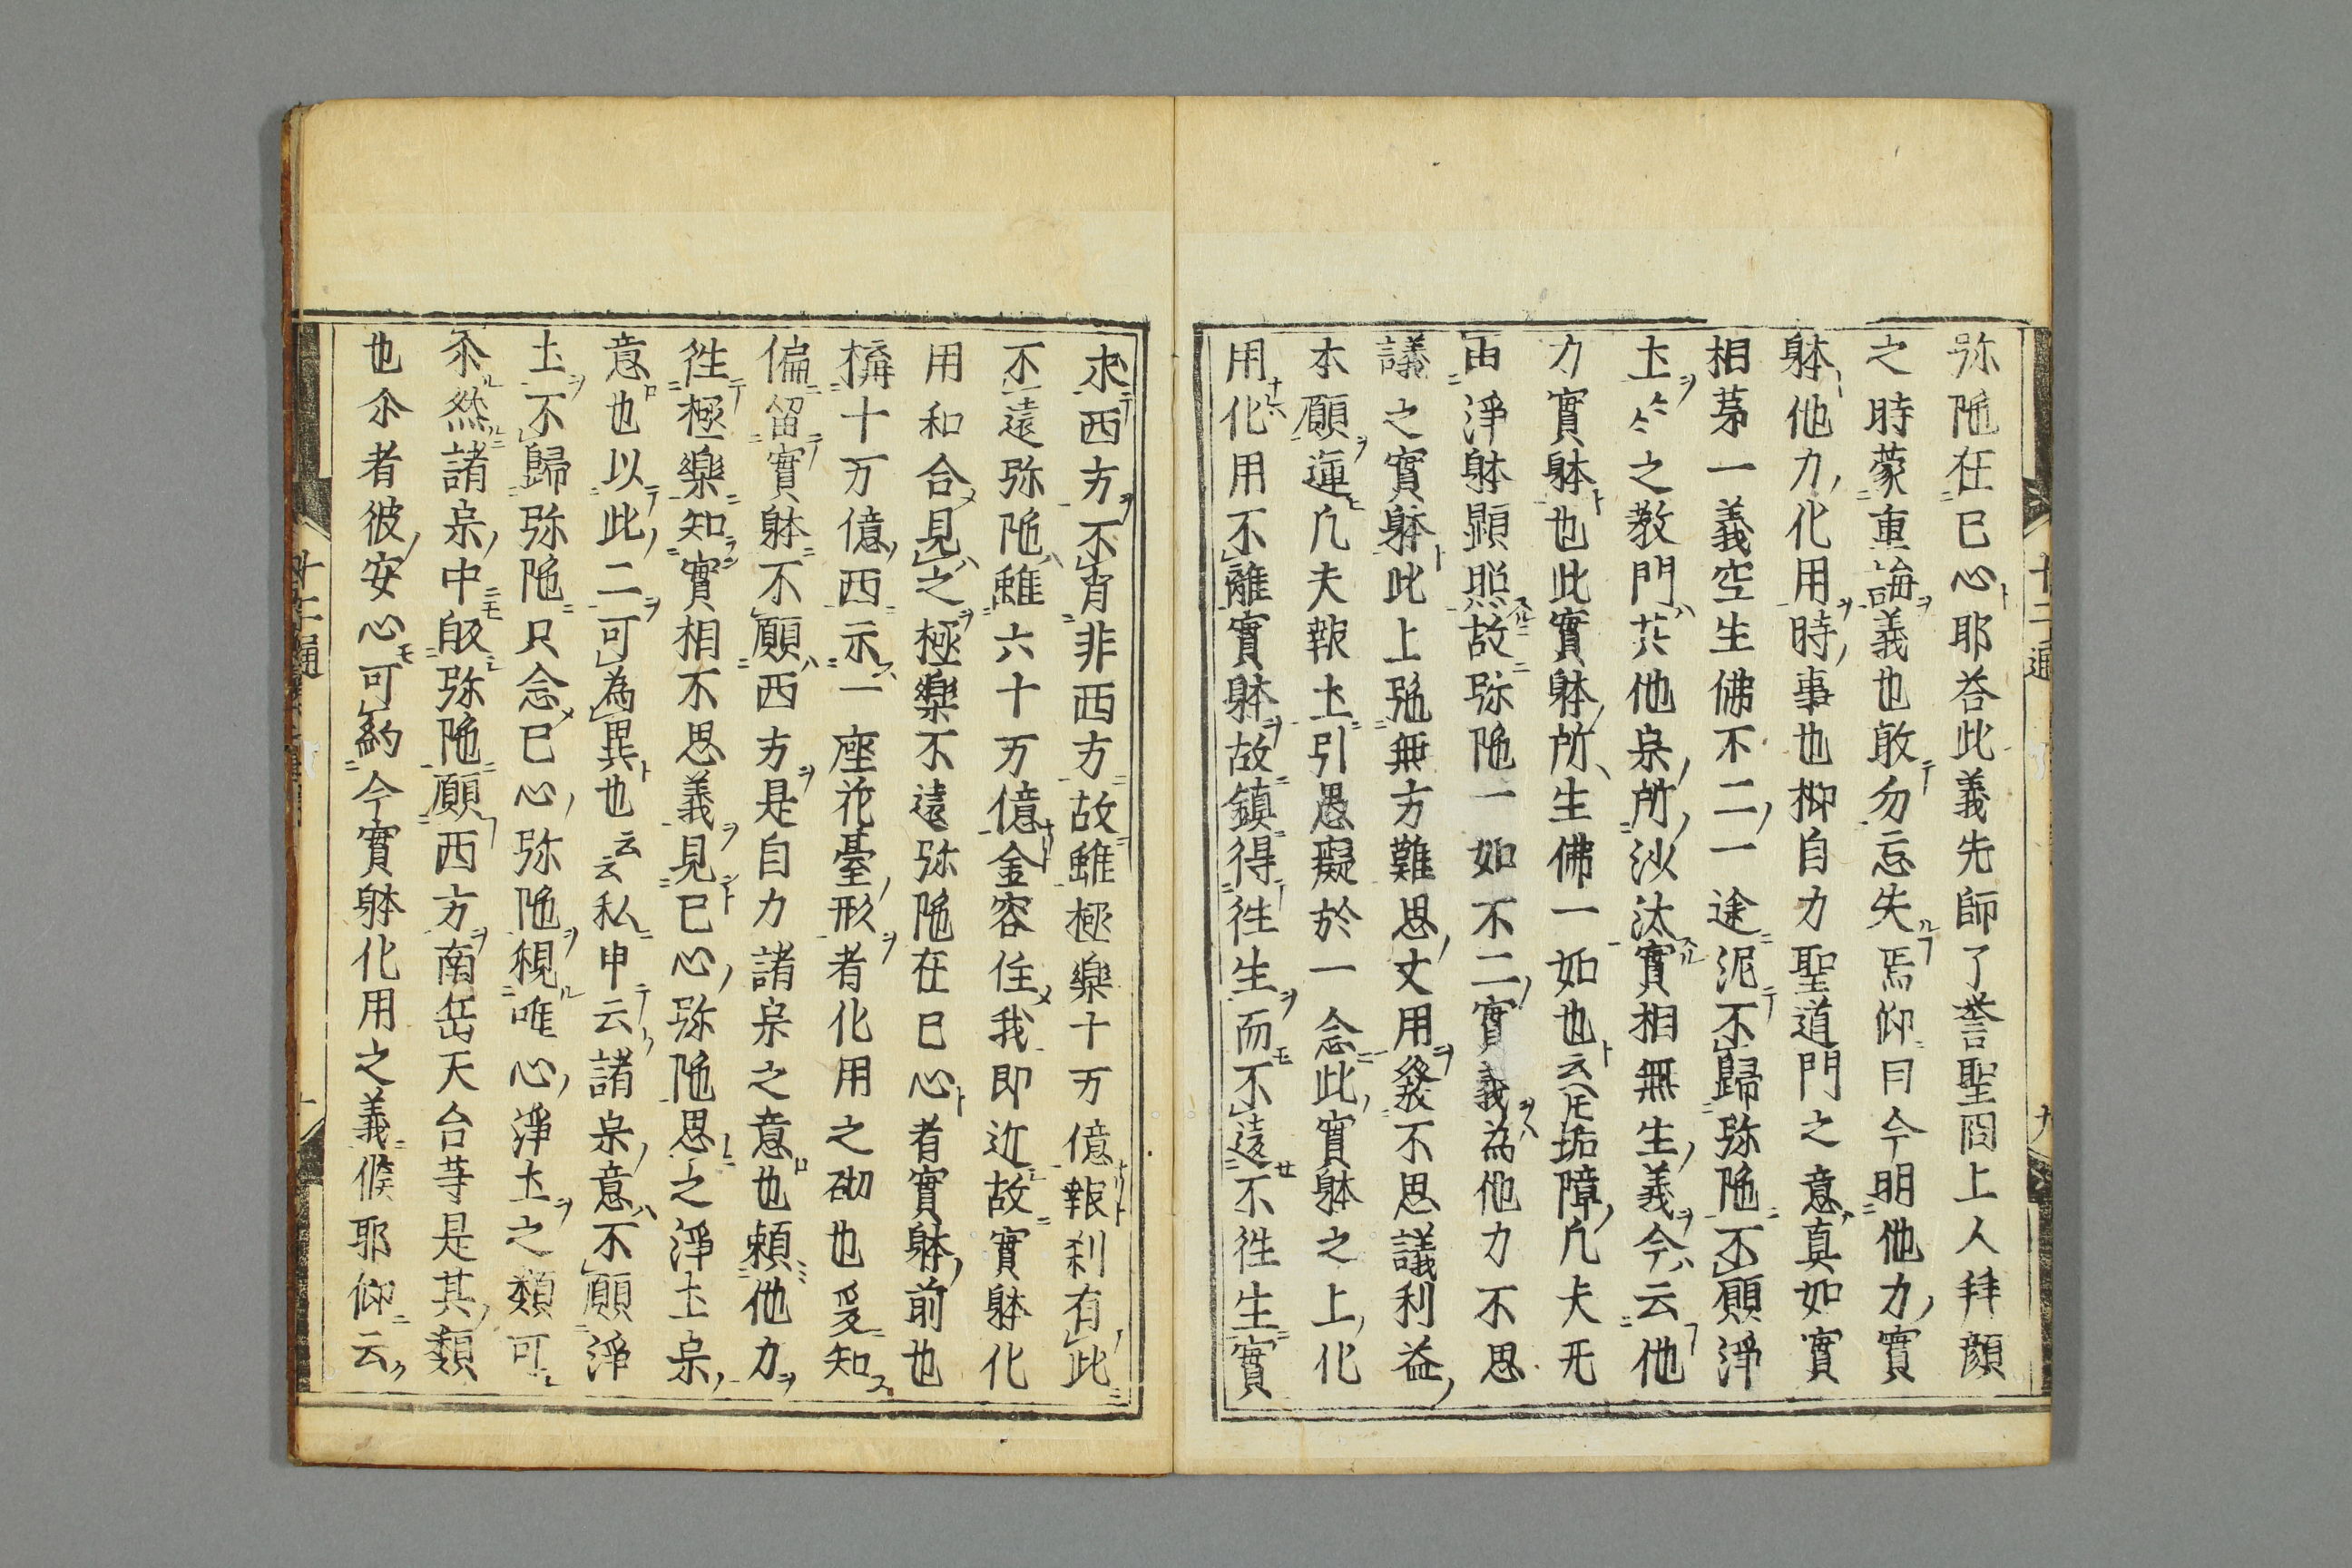 弥陁在己心耶荅此義先師了誉聖冏上人拜顔
之時蒙重誨義也敢勿忘失焉仰曰今明他力實
躰他力化用時事也抑自力聖道門之意真如實
相苐一義空生佛不二一途泥不歸弥陁不願淨
土々々之教門共他宗所沙汰實相無生義今云他
力實躰也此實躰所生佛一如也云无垢障凢夫无
由淨躰顕照故弥陁一如不二實義為他力不思
議之實躰此上強無方難思丈用發不思議利益
本願運凢夫報土引愚癡於一念此實躰之上化
用化用不離實躰故鎮得徃生而不遠不徃生實
十二通
九
求西方不肯非西方故雖極樂十万億報刹有此
不遠弥陁雖六十万億金容住我即近故實躰化
用和合見之極樂不遠弥陁在己心者實躰前也
構十万億西示一座花臺形者化用之砌也爰知
偏留實躰不願西方是自力諸宗之意也頼他力
徃極樂知實相不思義見己心弥陁思之淨土宗
意也以此二可為異也云云私申云諸宗意不願淨
土不歸弥陁只念己心弥陁覌唯心淨土之類可
尒然諸宗中皈弥陁願西方南岳天台等是其類
也尒者彼安心可約今實躰化用之義候耶仰云
十二通